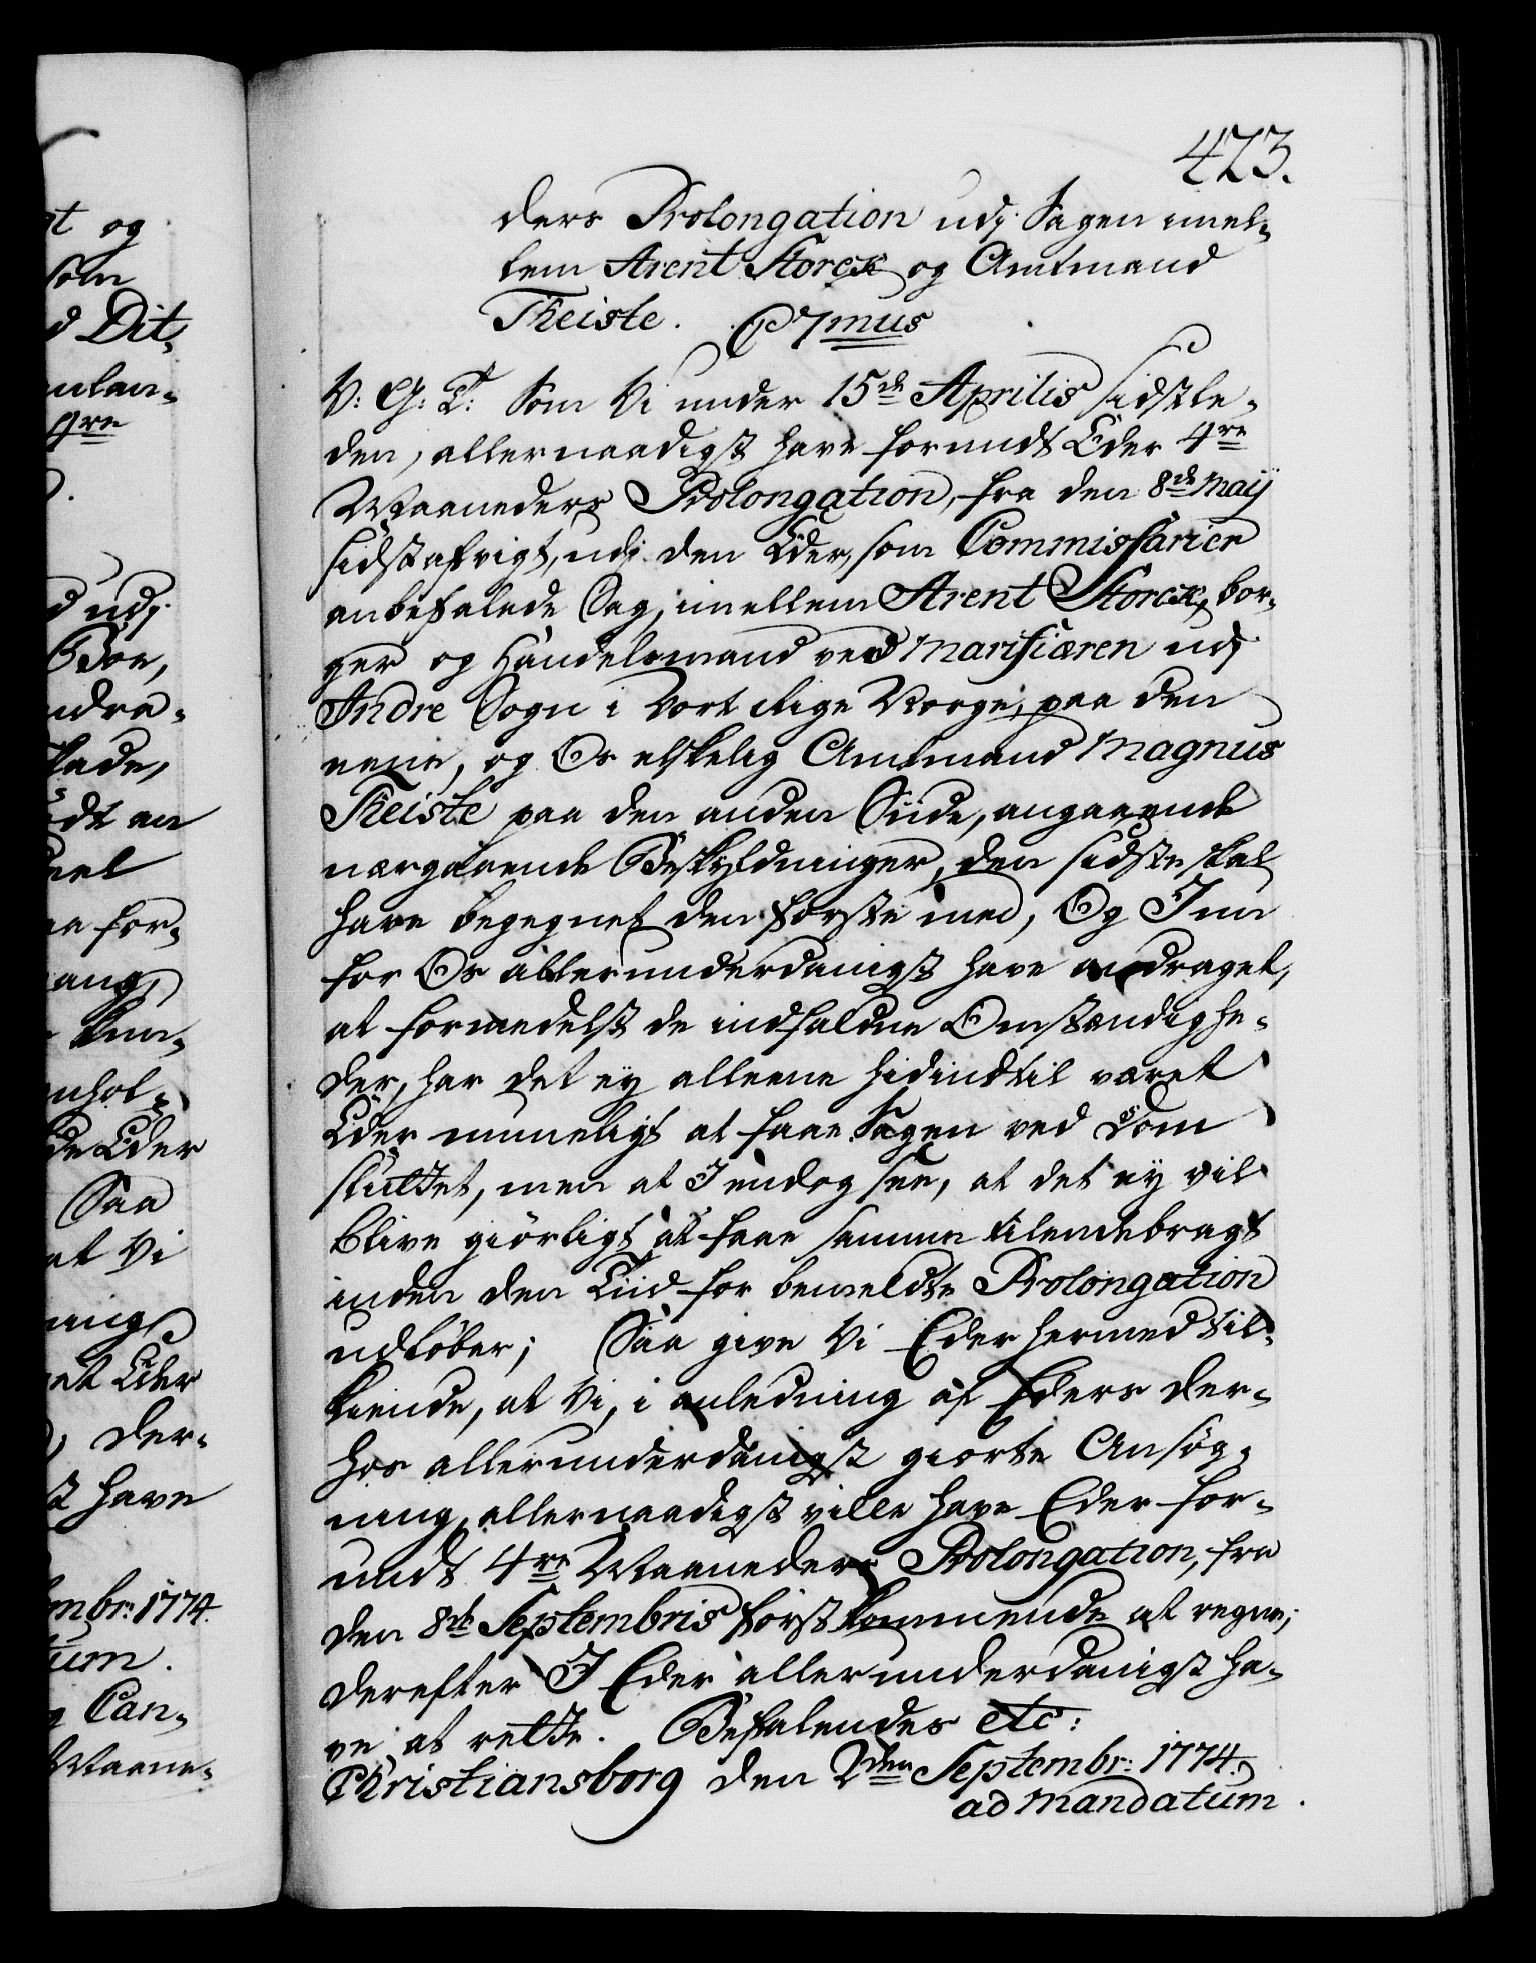 473.
ders Prolongation udj Sagen imel-
lem Arent Storck og Amtmand
Theiste. C 7mus
V: G: T: Som Vi under 15de Aprilis sidstle-
den, allernaadigst have forundt Eder 4re
Maaneders Prolongation, fra den 8de Maij
sidstafvigt, udj den Eder, som Commissarier
anbefalede Sag, imellem Arent Storck, bor-
ger og Handelsmand ved Marifiæren udj
Indre Sogn i Vort Rige Norge, paa den
eene, og Os elskelig Amtmand Magnus
Theiste paa den anden Siide, angaaende
nærgaaende Beskyldninger, den sidste skal
have begegnet den første med, Og I nu
for Os allerunderdanigst have andraget,
at formedelst de indfaldne Omstændighe-
der, har det ey alleene hidindtil været
Eder umueligt at faae Sagen ved Dom
sluttet, men at I endog see, at det ey vil
blive giørligt at faae samme tilendebragt
inden den Tiid for bemeldte Prolongation
udløber; Saa give Vi Eder hermed til-
kiende, at Vi, i anledning af Eders der-
hos allerunderdanigst giorte Ansøg-
ning, allernaadigst ville have Eder for-
undt 4re Maaneders Prolongation, fra
den 8de Septembris førstkommende at regne;
derefter I Eder allerunderdanigst ha-
ve at rette. Befalendes etc:
Christiansborg den 2den Septembr: 1774.
ad mandatum.
t og
som
d Dit-
gre
d udj
Boe,
ndra-
kade,
dt en
deel
for-
gang
kun-
nhol-
de Eder
Saa
at Vi
ning
et Eder
der-
st have
mbr: 1774.
tum.
g Can-
Maane-